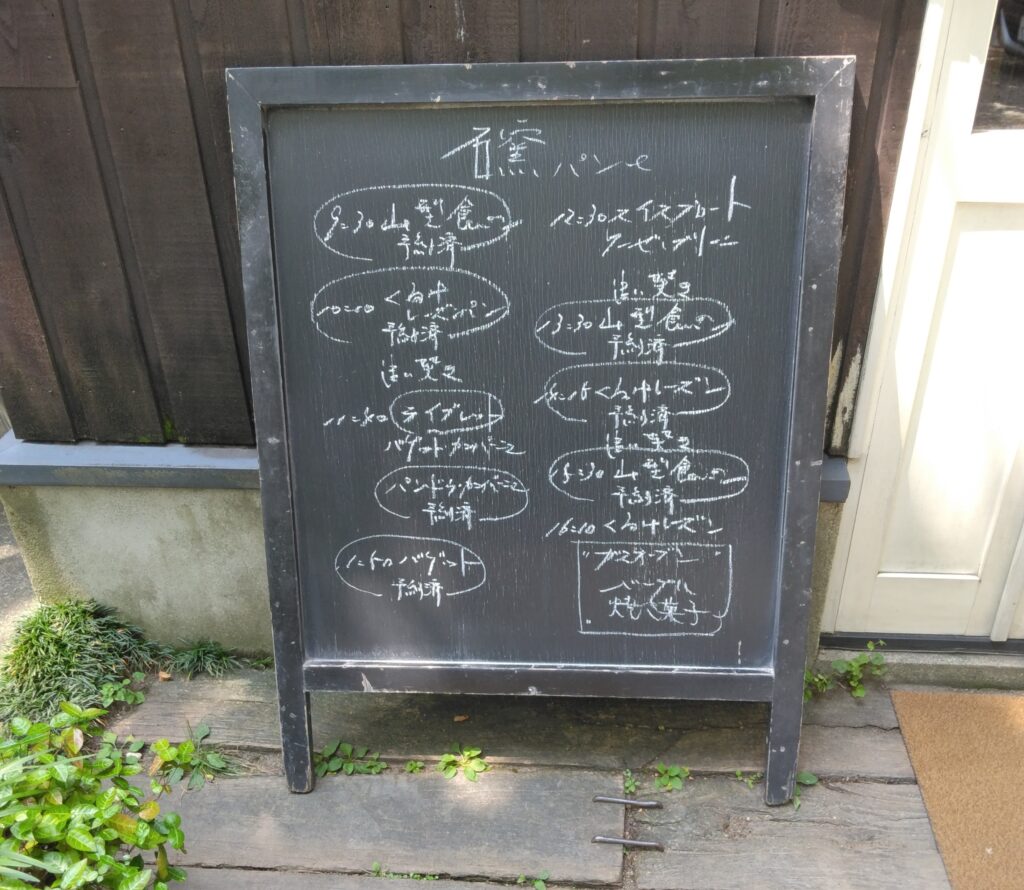 石窯パン
9=30 山型食パン
予約済
10=10 くるみ
レーズンパン
予約済
追い焚き
11=40 ライブレッド
バゲット カンパーニュ
パンドゥカンパーニュ
予約済
バゲット
予約済
12=30 スイスブロート
追い焚き
13=30 山型食パン
予約済
くるみレーズン
予約済
追い焚き
15=30 山型食パン
予約済
16=10 くるみレーズン
"ガスオーブン"
ベーグル
焼き菓子